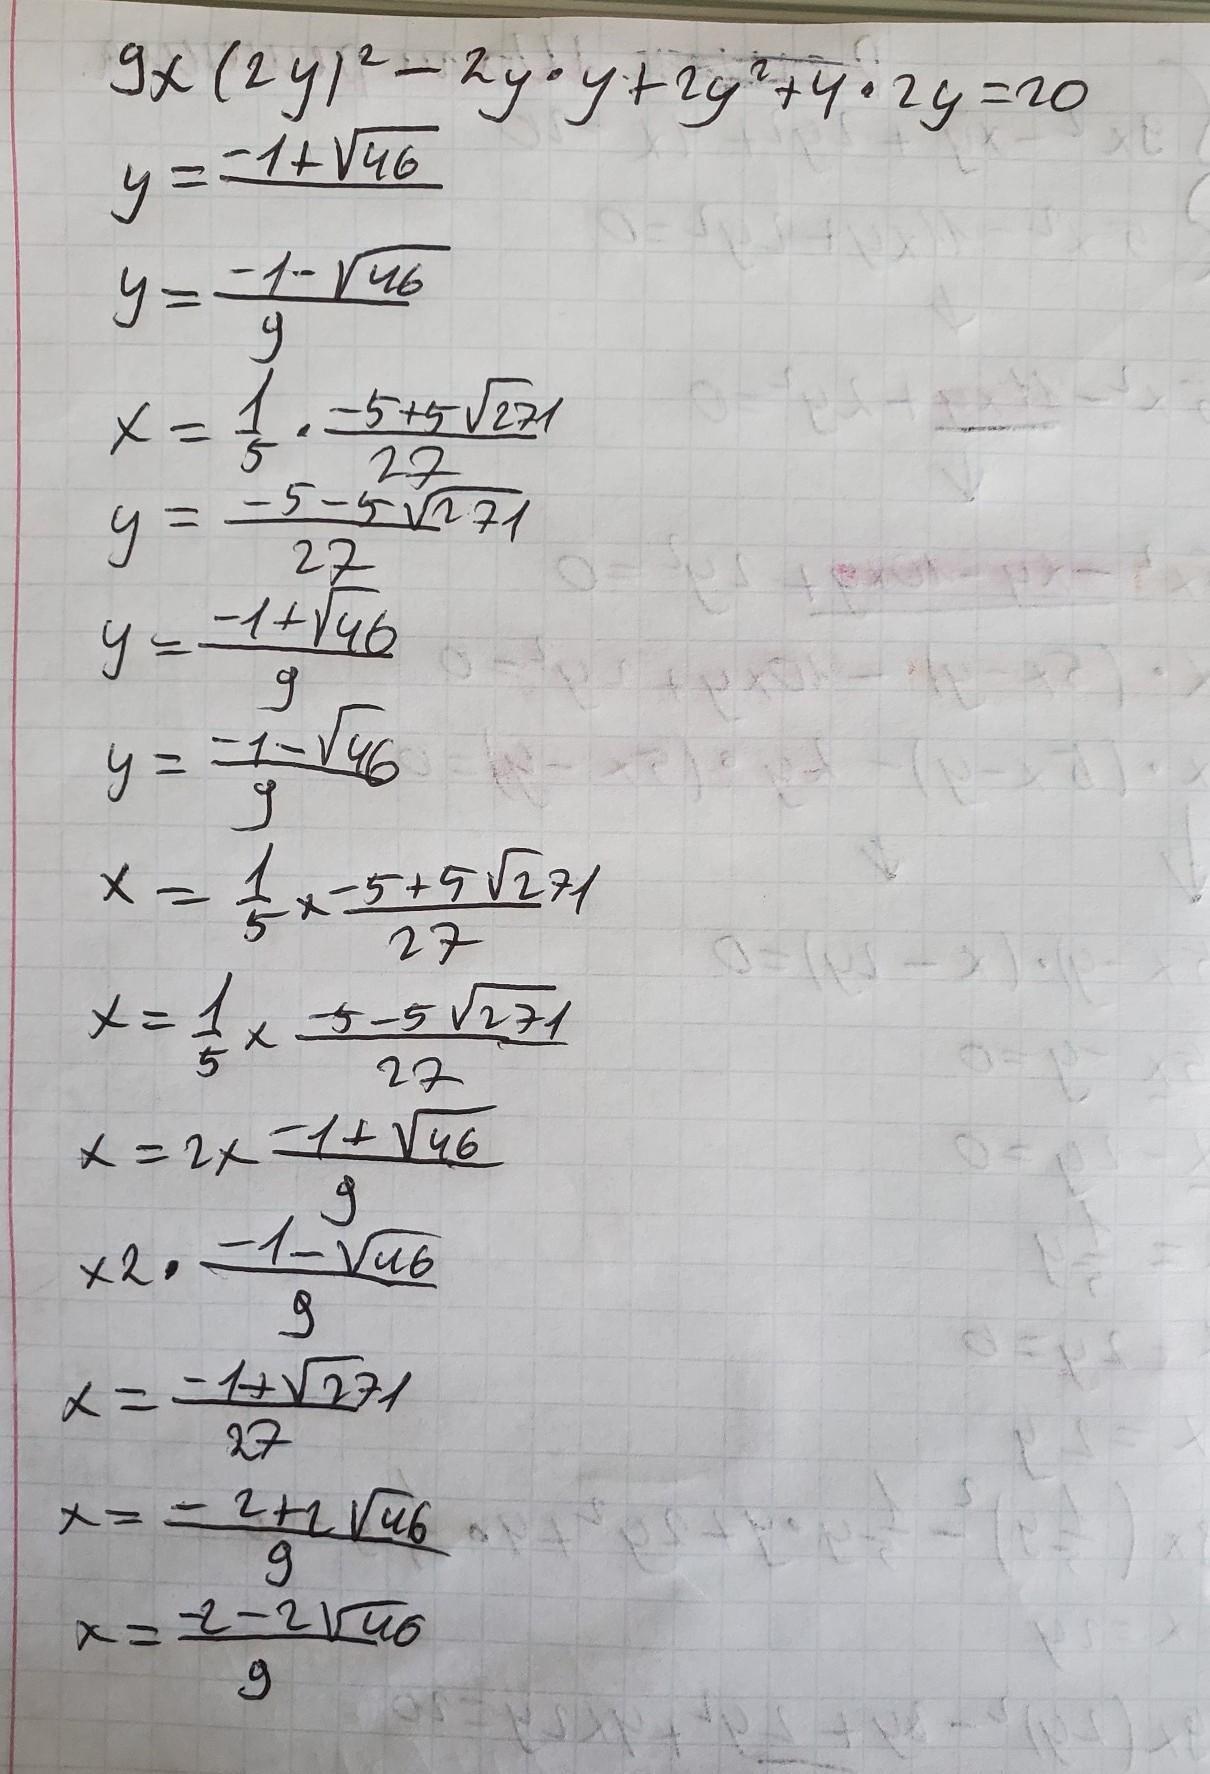 9x(2y)² - 2y·y+2y²+4·2y=20
y = (-1+√46)/
y = (-1-√46)/9
x = 1/5 · (-5+5√271)/27
y = (-5-5√271)/27
y = (-1+√46)/9
y = (-1-√46)/9
x = 1/5 x (-5+5√271)/27
x = 1/5 x (-5-5√271)/27
x = 2x (-1+√46)/9
x2 · (-1-√46)/9
x = (-1+√271)/27
x = (-2+2√46)/9
x = (-2-2√46)/9